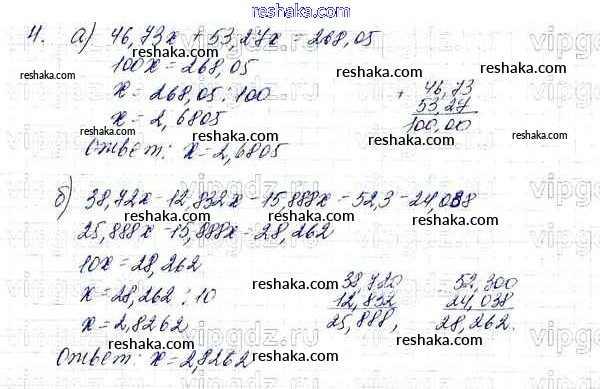 reshaka.com
4. а) 46,73x + 53,27x = 268,05
100x = 268,05
x = 268,05 : 100
x = 2,6805
Ответ: x = 2,6805
+ 46,73
53,27
100,00
б) 38,72x - 12,832x - 15,888x - 52,3 - 24,038
25,888x - 15,888x - 28,262
10x = 28,262
x = 28,262 : 10
x = 2,8262
Ответ: x = 2,8262
38,720
12,832
25,888,
52,300
24,038
28,262.
reshaka.com
reshaka.com
reshaka.com
reshaka.com
reshaka.com
reshaka.com
reshaka.com
reshaka.com
reshaka.com
reshaka.com
reshaka.com
reshaka.com